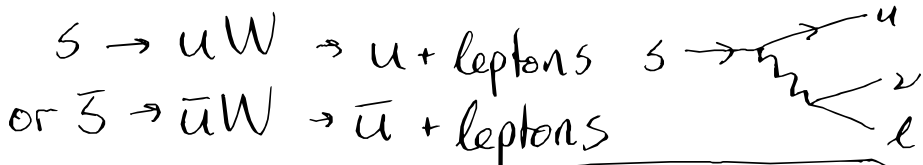 s → uW → u + leptons s u
ν
or s̄ → ūW → ū + leptons l